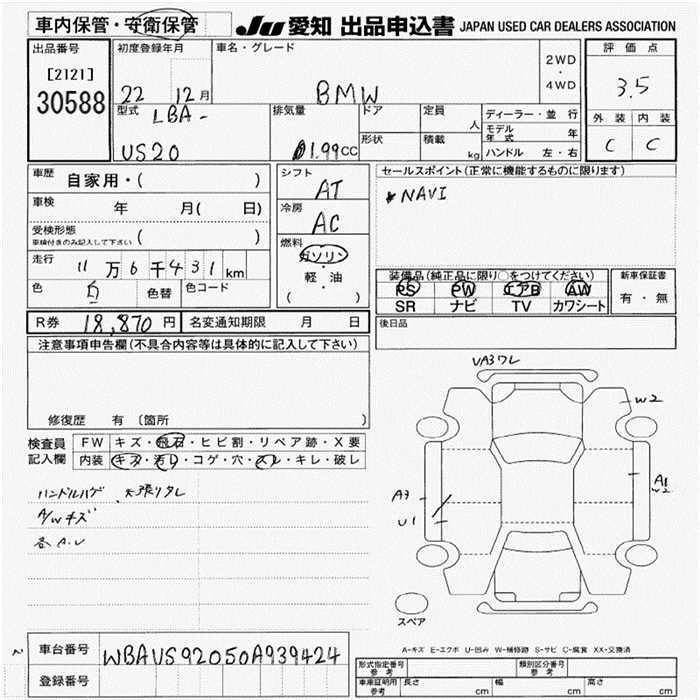 車内保管・守衛保管
JU 愛知 出品申込書 JAPAN USED CAR DEALERS ASSOCIATION
出品番号
[2121]
30588
初度登録年月
22 12月
車名・グレード
BMW
2WD
・
4WD
評価点
3.5
外装 内装
C C
型式 LBA-
US20
排気量
1.99cc
ドア
形状
定員 人
積載 kg
ディーラー・並行
モデル年式 年
ハンドル 左・右
車歴 自家用・( )
車検 年 月( 日)
受検形態
車検付きのみ記入して下さい ( )
走行 11万6千431km
色 白 色替 色コード
シフト AT
冷房 AC
燃料
ガソリン
・
軽・油
( )
セールスポイント(正常に機能するものに限ります)
NAVI
装備品(純正品に限り○をつけてください)
PS PW エアB AW
SR ナビ TV カワシート
新車保証書
有・無
後日品
R券 18,870円 名変通知期限 月 日
注意事項申告欄(不具合内容等は具体的に記入して下さい)
修復歴 有 〔箇所 〕
検査員記入欄
FW キズ・飛石・ヒビ割・リペア跡・X要
内装 キズ・汚れ・コゲ・穴・スレ・キレ・破レ
ハンドルハゲ 天張りタレ
A/Wキズ
各A.U
VA3ワレ
W2
A3
U1
A1
W2
スペア
A-キズ E-エクボ U-凹み W-補修跡 S-サビ C-腐食 XX-交換済
車台番号 WBAVS92050A939424
登録番号
型式指定番号 参考
類別区分番号 参考
車庫証明用 参考 長さ cm 幅 cm 高さ cm